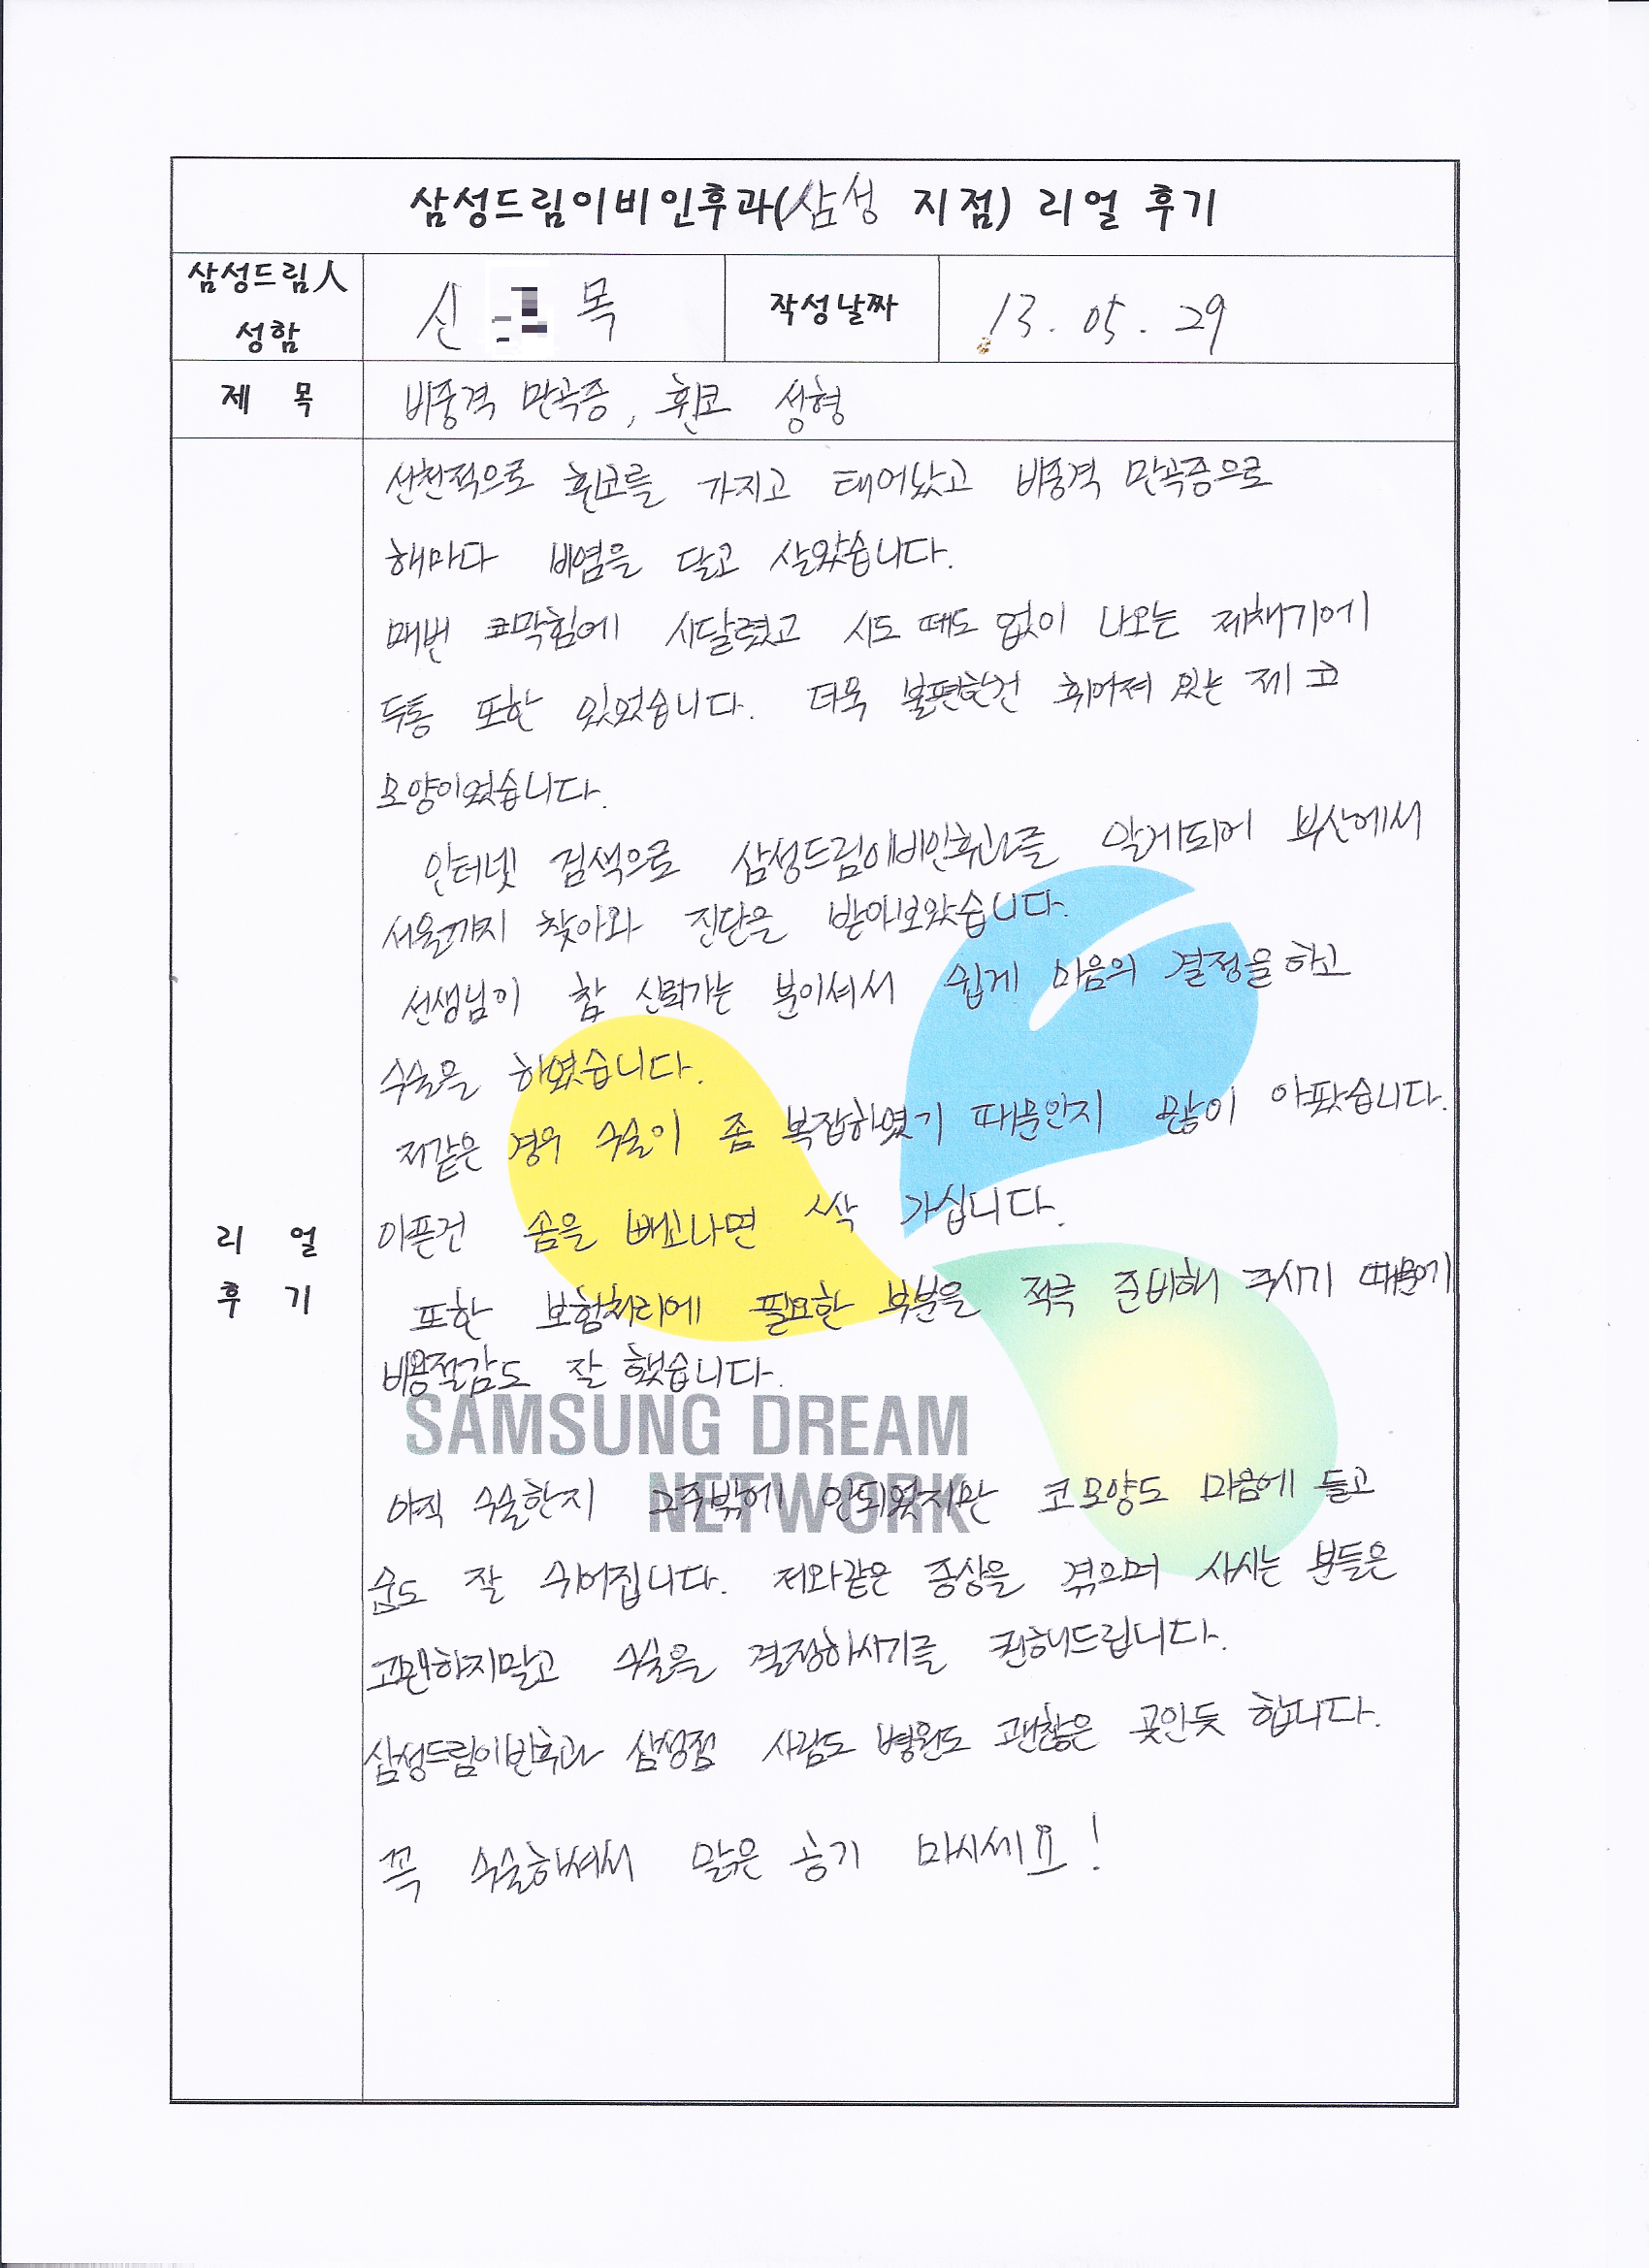 삼성드림이비인후과(삼성 지점) 리얼 후기
삼성드림人
성함
신 목
작성날짜
13. 05. 29
제 목
비중격 만곡증, 휜코 성형
선천적으로 휜코를 가지고 태어났고 비중격 만곡증으로
해마다 비염을 달고 살았습니다.
매번 코막힘에 시달렸고 시도 때도 없이 나오는 재채기에
두통 또한 있었습니다. 더욱 불편한건 휘어져 있는 제 코
모양이었습니다.
인터넷 검색으로 삼성드림이비인후과를 알게되어 부산에서
서울까지 찾아와 진단을 받아보았습니다.
선생님이 참 신뢰가는 분이셔서 쉽게 마음의 결정을하고
수술을 하였습니다.
저같은 경우 수술이 좀 복잡하였기 때문인지 많이 아팠습니다.
아픈건 솜을 빼고나면 싹 가십니다.
또한 보험처리에 필요한 부분을 적극 준비해 주시기 때문에
비용절감도 잘 했습니다.
SAMSUNG DREAM
NETWORK
아직 수술한지 2주밖에 안되었지만 코모양도 마음에 들고
숨도 잘 쉬어집니다. 저와같은 증상을 겪으며 사시는 분들은
고민하지말고 수술을 결정하시기를 권해드립니다.
삼성드림이빈후과 삼성점 사람도 병원도 괜찮은 곳인듯 합니다.
꼭 수술하셔서 맑은 공기 마시세요!
리 얼
후 기